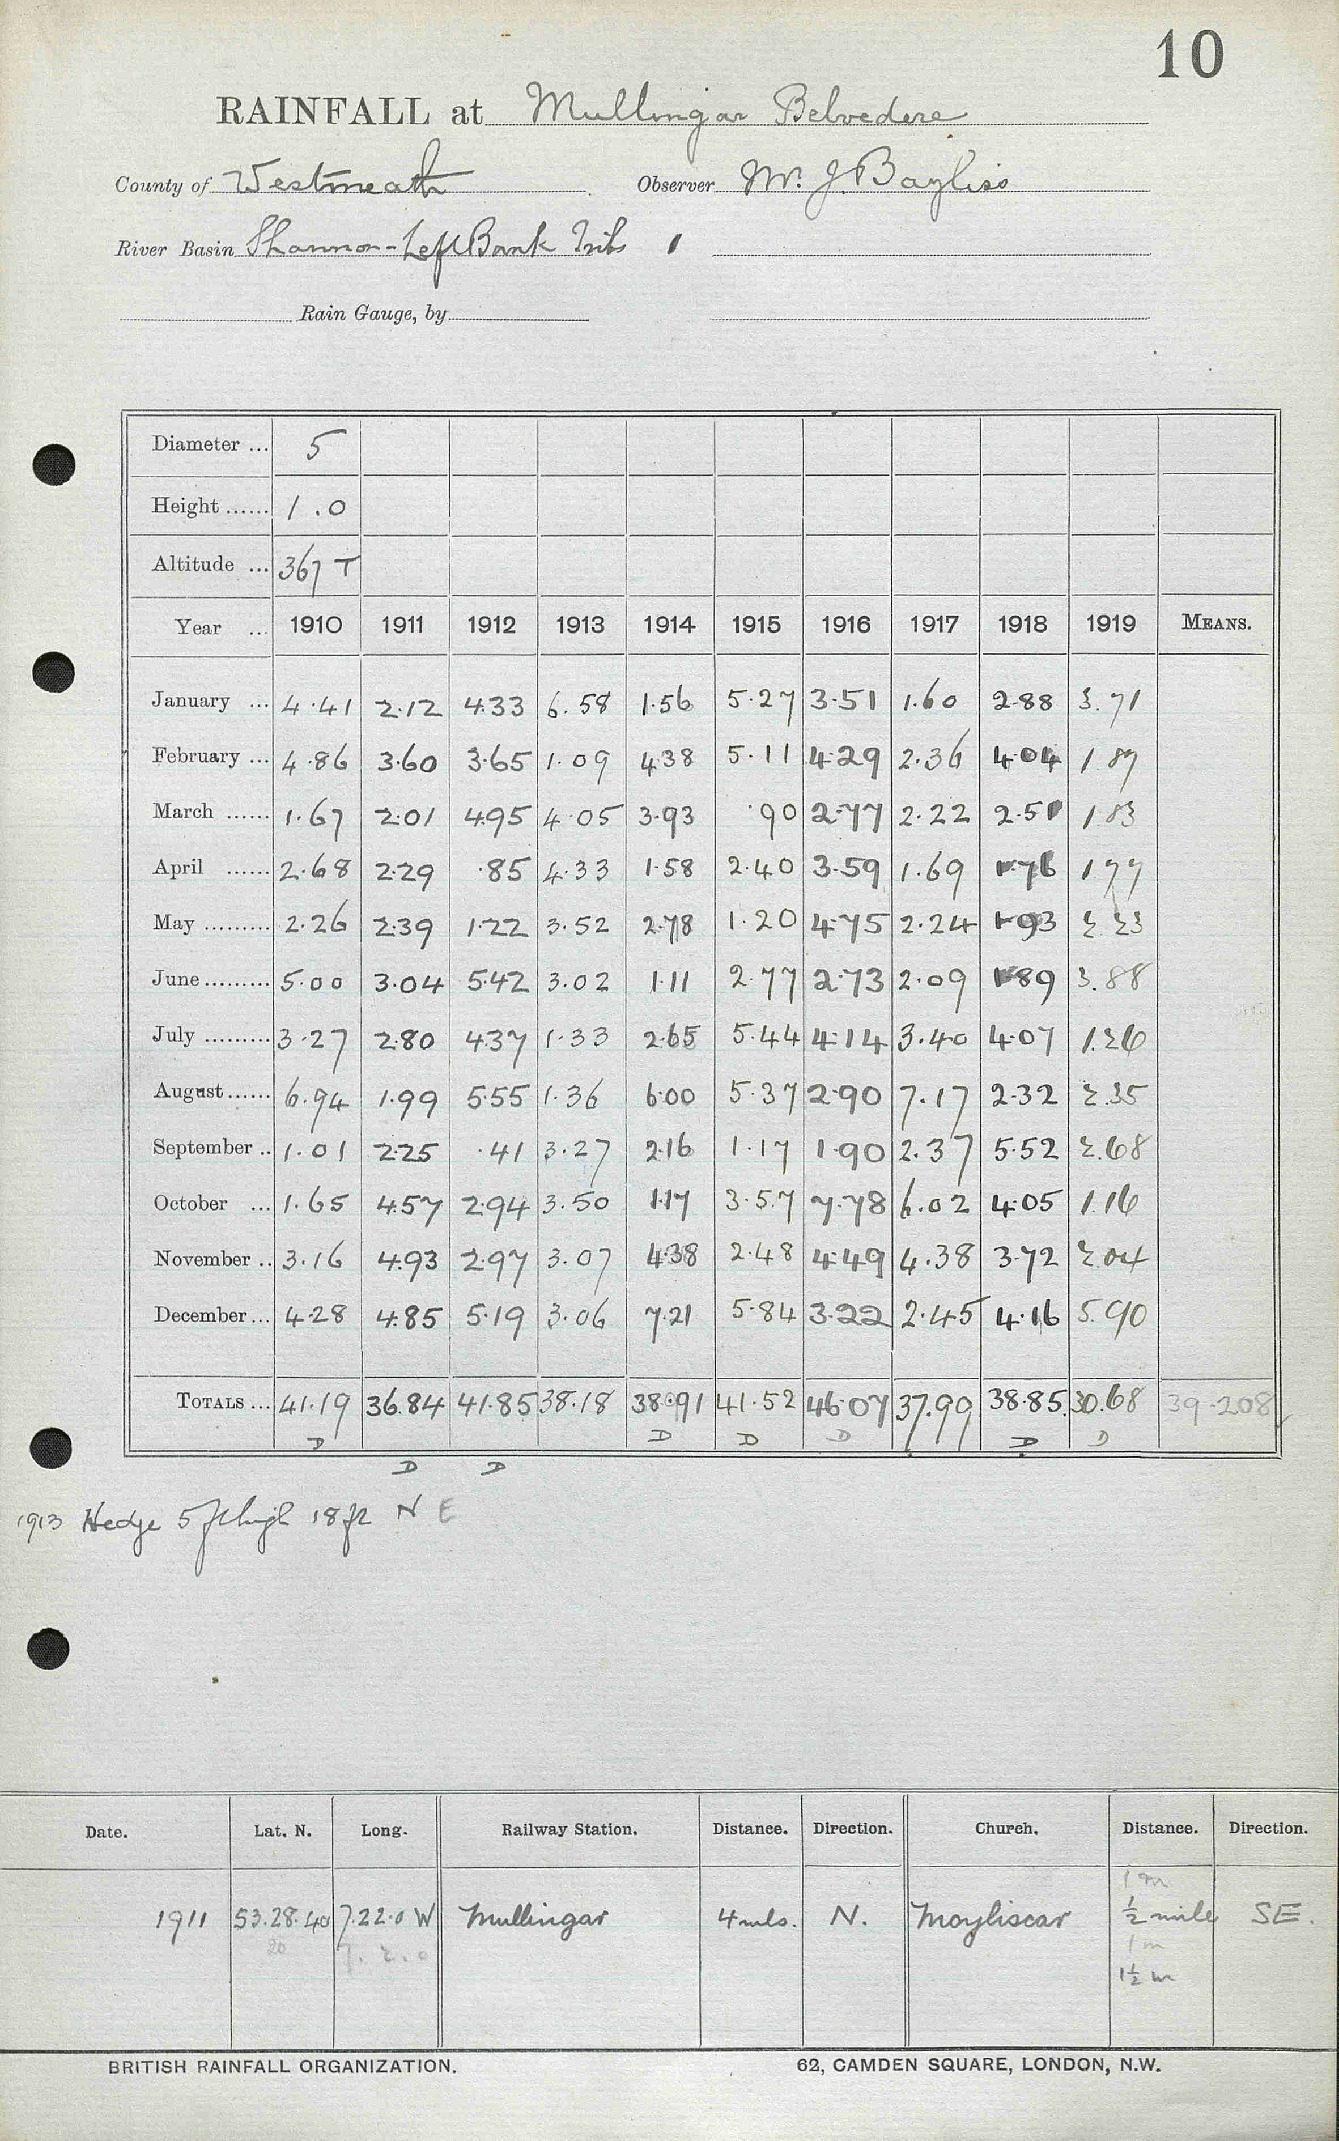 10
RAINFALL at Mullingar Belvedere
County of Westmeath Observer Mr. J. Bayliss
River Basin Shannon-Left Bank Tribs
Rain Gauge, by
Diameter ... 5
Height ...... 1.0
Altitude ... 367 T
Year ... 1910 1911 1912 1913 1914 1915 1916 1917 1918 1919 MEANS.
January ... 4.41 2.12 4.33 6.58 1.56 5.27 3.51 1.60 2.88 3.71
February ... 4.86 3.60 3.65 1.09 4.38 5.11 4.29 2.36 4.04 1.87
March ...... 1.67 2.01 4.95 4.05 3.93 .90 2.77 2.22 2.51 1.83
April ...... 2.68 2.29 .85 4.33 1.58 2.40 3.59 1.69 1.76 1.77
May ......... 2.26 2.39 1.22 3.52 2.78 1.20 4.75 2.24 1.93 2.23
June ......... 5.00 3.04 5.42 3.02 1.11 2.77 2.73 2.09 1.89 3.88
July ......... 3.27 2.80 4.37 1.33 2.65 5.44 4.14 3.40 4.07 1.26
August ...... 6.94 1.99 5.55 1.36 6.00 5.37 2.90 7.17 2.32 2.35
September .. 1.01 2.25 .41 3.27 2.16 1.17 1.90 2.37 5.52 2.68
October ... 1.65 4.57 2.94 3.50 1.17 3.57 7.78 6.02 4.05 1.16
November .. 3.16 4.93 2.97 3.07 4.38 2.48 4.49 4.38 3.72 2.04
December ... 4.28 4.85 5.19 3.06 7.21 5.84 3.22 2.45 4.16 5.90
TOTALS ... 41.19 36.84 41.85 38.18 38.91 41.52 46.07 37.99 38.85 30.68 39.208
D D D D D D
D D
1913 Hedge 5 ft high 18 ft N E
Date. Lat. N. Long. Railway Station. Distance. Direction. Church. Distance. Direction.
1 m
1911 53.28.40 7.22.0 W Mullingar 4 mls. N. Moyliscar ½ mile SE.
20 7.2.0 1 m
1½ m
BRITISH RAINFALL ORGANIZATION. 62, CAMDEN SQUARE, LONDON, N.W.